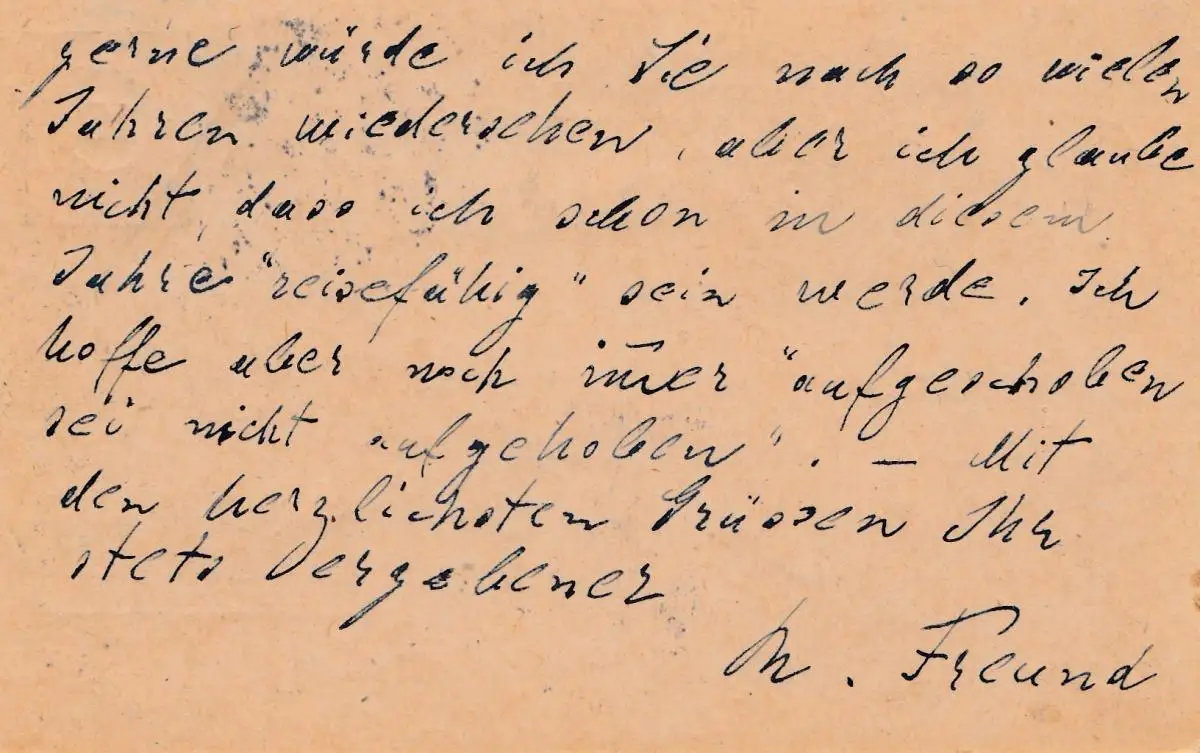 gerne würde ich Sie nach so vielen
Jahren wiedersehen, aber ich glaube
nicht, dass ich schon in diesem
Jahre "reisefähig" sein werde. Ich
hoffe aber noch im̄er "aufgeschoben
sei nicht aufgehoben". — Mit
den herzlichsten Grüssen Ihr
stets ergebener
M. Freund